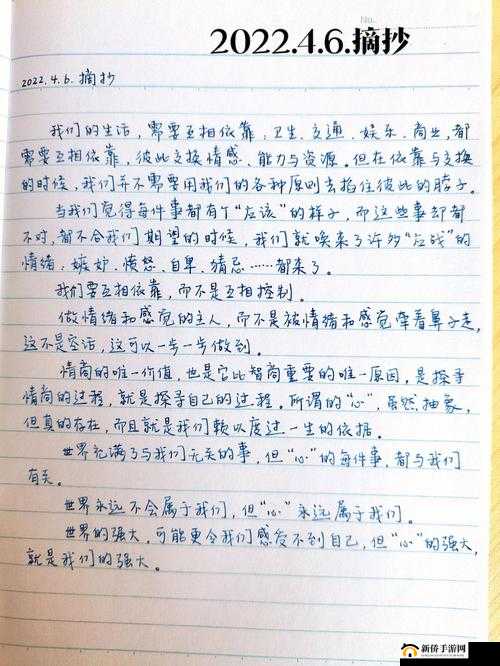 No.
2022.4.6.摘抄
2022.4.6.摘抄
我们的生活，需要互相依靠，卫生、交通、娱乐、商业，都
需要互相依靠，彼此交换情感、能力与资源。但在依靠与交换
的时候，我们并不需要用我们的各种原则去掐住彼此的脖子。
当我们觉得每件事都有个“应该”的样子，而这些事却都
不对，都不合我们期望的时候，我们就唤来了许多“应战”的
情绪，嫉妒、愤怒、自卑、猜忌……都来了。
我们要互相依靠，而不是互相控制。
做情绪和感觉的主人，而不是被情绪和感觉牵着鼻子走，
这不是空话，这可以一步一步做到。
情商的唯一价值，也是它比智商重要的唯一原因，是探寻
情商的过程，就是探寻自己的过程。所谓的“心”，虽然抽象，
但真的存在，而且就是我们赖以度过一生的依据。
世界充满了与我们无关的事，但“心”的每件事，都与我们
有关。
世界永远不会属于我们，但“心”永远属于我们。
世界的强大，可能更令我们感受不到自己，但“心”的强大，
就是我们的强大。
新侨手游网